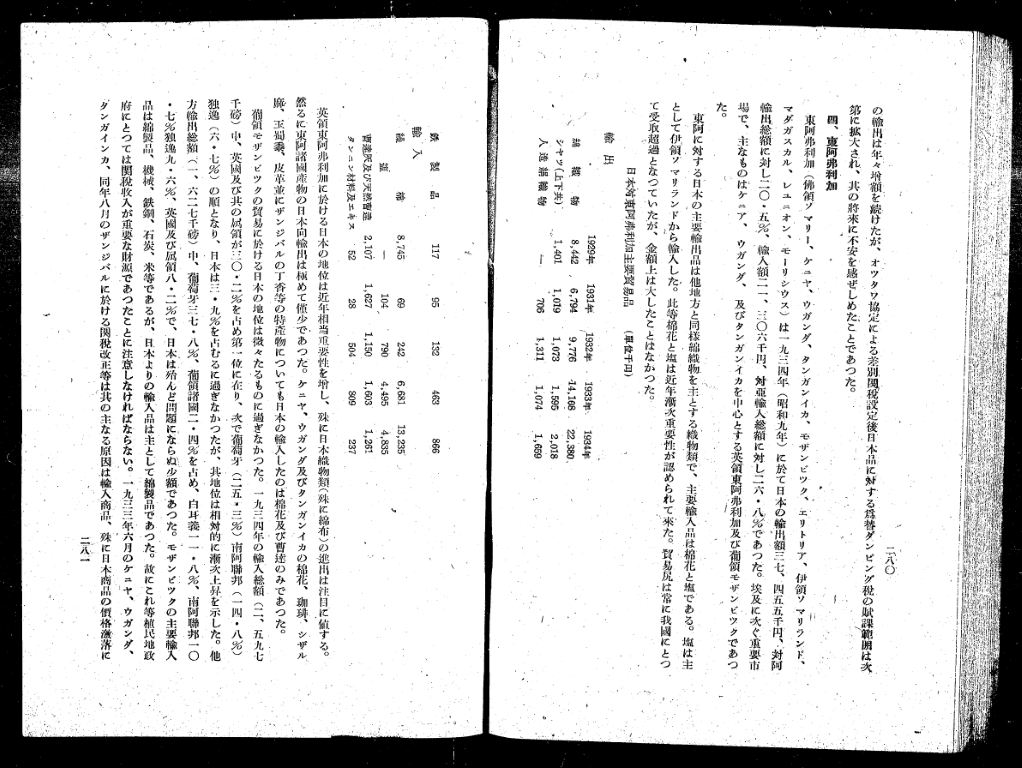 二八〇
の輸出は年々増額を続けたが、オツタワ協定による差別関税設定後日本品に対する為替ダンピング税の賦課範囲は次
第に拡大され、其の将來に不安を感ぜしめたことであつた。
四、東阿弗利加
東阿弗利加（佛領ソマリー、ケニヤ、ウガンダ、タンガンイカ、モザンビツク、エリトリア、伊領ソマリランド、
マダガスカル、レユニオン、モーリシウス）は一九三四年（昭和九年）に於て日本の輸出額三七、四五五千円、対阿
輸出総額に対し二〇・五％、輸入額二一、三〇六千円、対亜輸入総額に対し二六・八％であつた。埃及に次ぐ重要市
場で、主なものはケニア、ウガンダ、及びタンガンイカを中心とする英領東阿弗利加及び葡領モザンビツクであつ
た。
東阿に対する日本の主要輸出品は他地方と同様綿織物を主とする織物類で、主要輸入品は棉花と塩である。塩は主
として伊領ソマリランドから輸入した。此等棉花と塩は近年漸次重要性が認められて來た。貿易尻は常に我國にとつ
て受取超過となつていたが、金額上は大したことはなかつた。
日本対東阿弗利加主要貿易品　（單位千円）
1929年 1931年 1932年 1933年 1934年
輸出
綿織物 8,442 6,794 9,776 14,168 22,380
シヤツ（上下共） 1,401 1,019 1,073 1,595 2,018
人造絹織物 — 706 1,311 1,074 1,669
鉄製品 117 95 132 463 866
輸入
繰棉 8,745 69 242 6,681 13,235
塩 — 104 790 4,495 4,835
曹達灰及び天然曹達 2,107 1,627 1,150 1,603 1,261
タンニン材料及エキス 52 28 504 809 237
英領東阿弗利加に於ける日本の地位は近年相当重要性を増し、殊に日本織物類（殊に綿布）の進出は注目に値する。
然るに東阿諸國産物の日本向輸出は極めて僅少であつた。ケニヤ、ウガンダ及びタンガンイカの棉花、珈琲、シザル
麻、玉蜀黍、皮革並にザンジバルの丁香等の特産物についても日本の輸入したのは棉花及び曹達のみであつた。
葡領モザンビツクの貿易に於ける日本の地位は微々たるものに過ぎなかつた。一九三四年の輸入総額（二、五九七
千磅）中、英國及び其の属領が三〇・二％を占め第一位に在り、次で葡萄牙（二五・三％）南阿聯邦（一四・八％）
独逸（六・七％）の順となり、日本は三・九％を占むるに過ぎなかつたが、其地位は相対的に漸次上昇を示した。他
方輸出総額（一、六二七千磅）中、葡萄牙三七・八％、葡領諸國二・四％を占め、白耳義一一・八％、南阿聯邦一〇
・七％独逸九・六％、英國及び属領八・二％で、日本は殆んど問題にならぬ少額であつた。モザンビツクの主要輸入
品は綿製品、機械、鉄鋼、石炭、米等であるが、日本よりの輸入品は主として綿製品であつた。故にこれ等植民地政
府にとつては関税收入が重要な財源であつたことに注意しなければならない。一九三三年六月のケニヤ、ウガンダ、
タンガイニカ、同年八月のザンジバルに於ける関税改正等は其の主なる原因は輸入商品、殊に日本商品の價格激落に
二八一